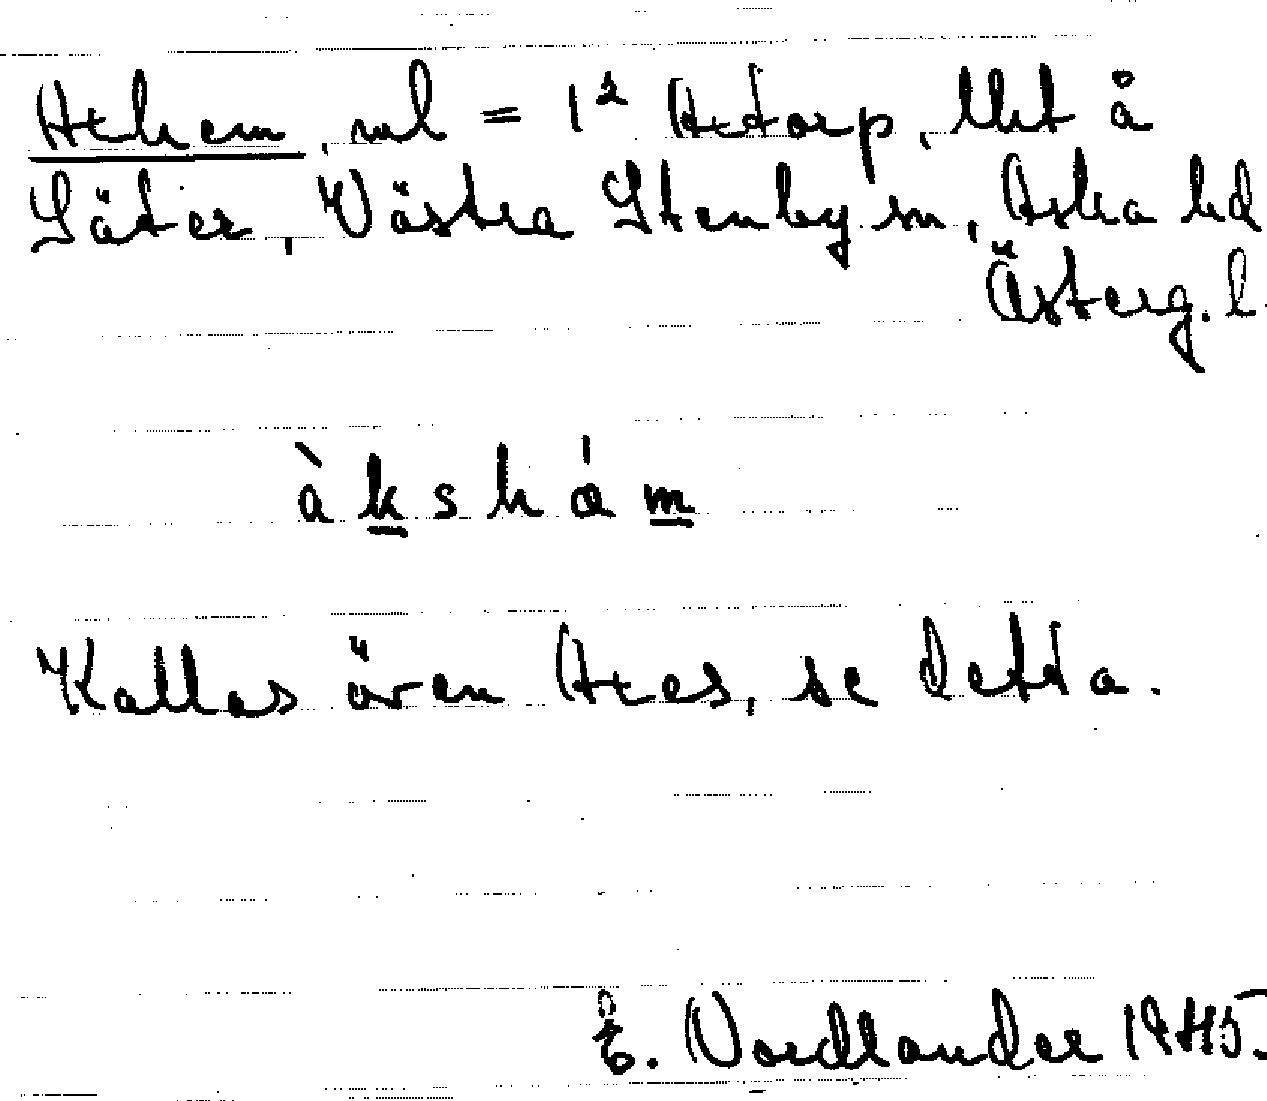 Axhem, ml = 1² Axtorp, lht å
Säter, Västra Stenby sn, Aska hd
Österg. l.
àkshám
Kallas även Axes, se detta.
E. Nordlander 1945.